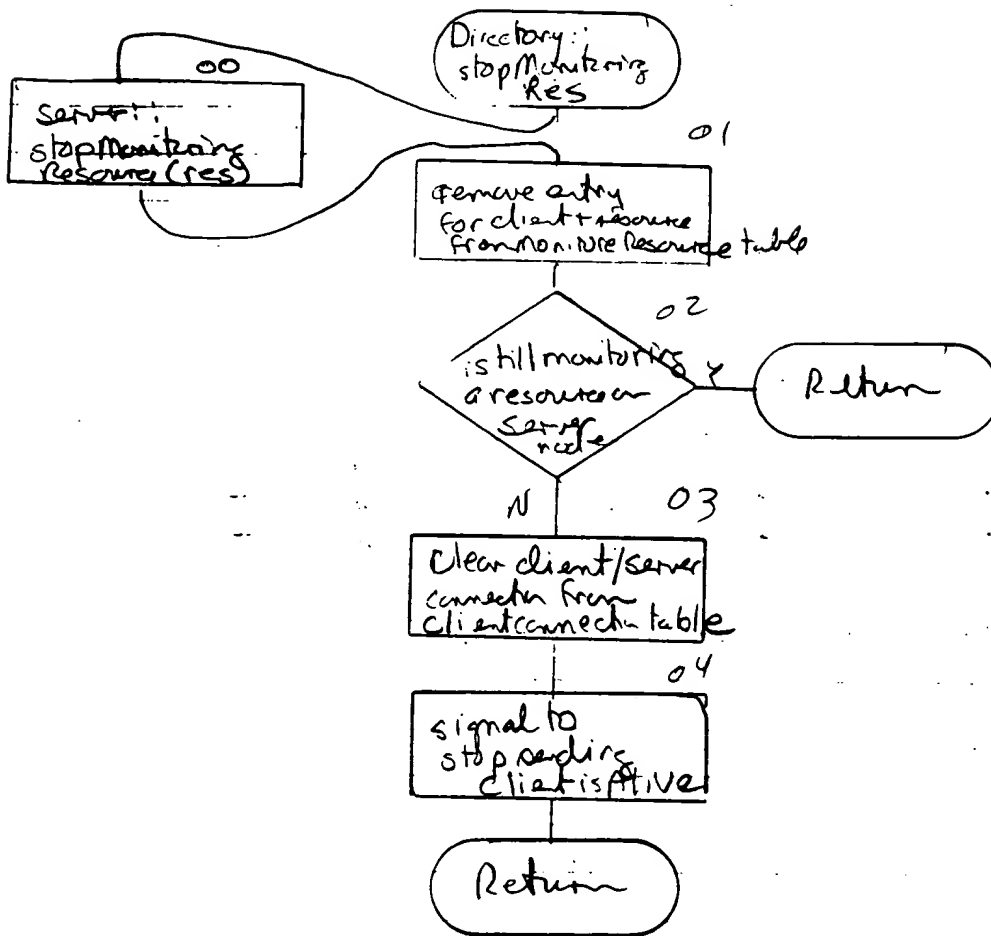 Directory::
stopMonitoring
Res
00
server::
stopMonitoring
Resource(res)
01
remove entry
for client + resource
from Monitore Resource table
02
is till monitoring
a resource on
server
node
Y
Return
N
03
Clear client/server
connection from
client connection table
04
signal to
stop sending
client is Alive
Return